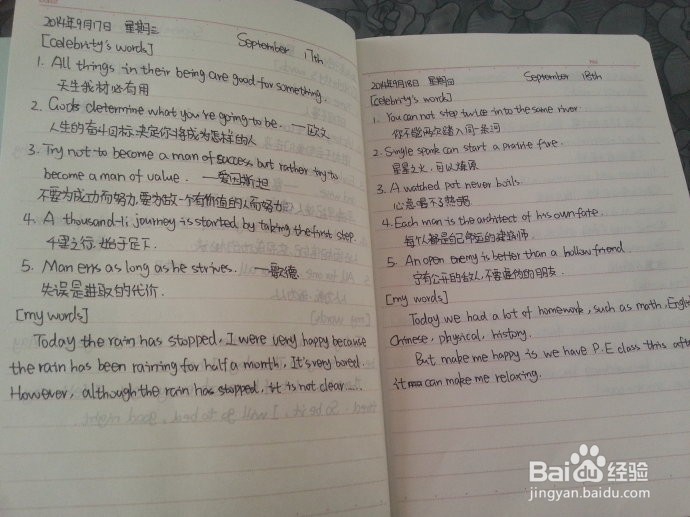 2014年9月17日 星期三 September 17th
[Celebrity's words]
1. All things in their being are good for something.
天生我材必有用
2. Gods determine what you're going to be. ——欧文
人生的奋斗目标决定你将成为怎样的人
3. Try not to become a man of success but rather try to
become a man of value. ——爱因斯坦
不要为成功而努力,要为做一个有价值的人而努力
4. A thousand-li journey is started by taking the first step.
千里之行,始于足下.
5. Man errs as long as he strives. ——歌德
失误是进取的代价.
[my words]
Today the rain has stopped, I were very happy because
the rain has been raining for half a month, It's very bored.
However, although the rain has stopped, it is not clear....
2014年9月18日 星期四 September 18th
[celebrity's word]
1. You can not step twice into the same river.
你不能两次踏入同一条河
2. Single spark can start a prairie fire.
星星之火,可以燎原
3. A watched pot never boils.
心急喝不了热粥
4. Each man is the architect of his own fate.
每个人都是自己命运的建筑师.
5. An open enemy is better than a hollow friend.
宁有公开的敌人,不要虚伪的朋友.
[my words]
Today we had a lot of homework, such as math, Engli
Chinese, physical, history.
But make me happy is we have P.E class this afte
it can make me relaxing.
Baidu经验
jingyan.baidu.com